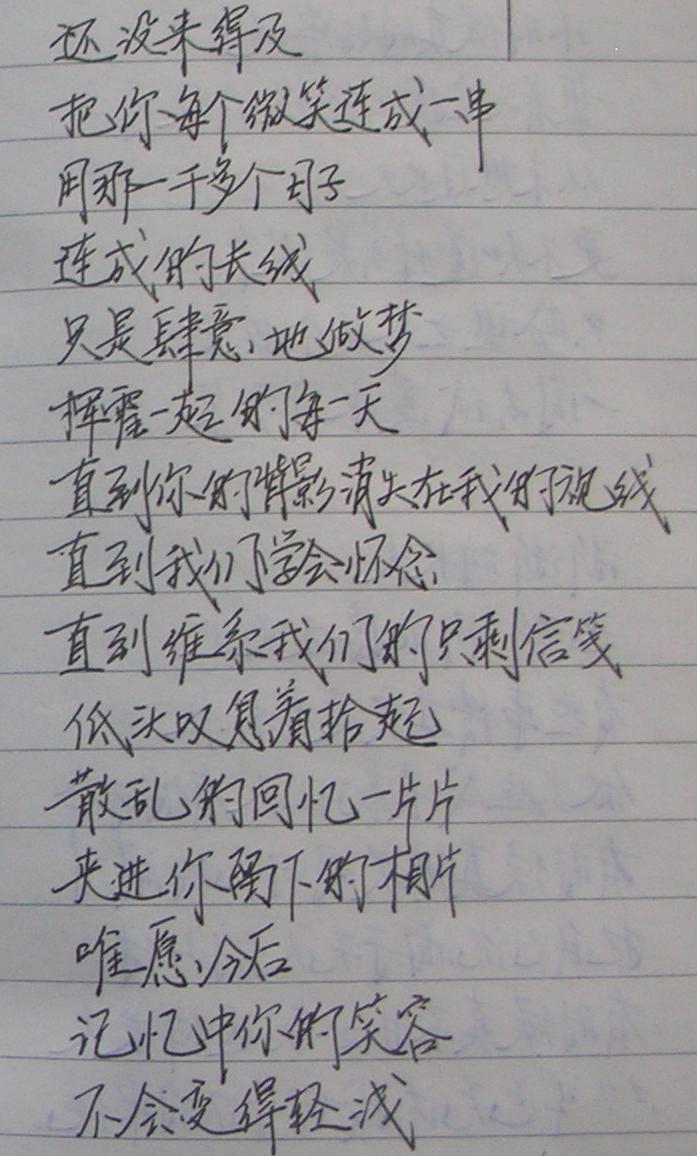 还没来得及
把你每个微笑连成一串
用那一千多个日子
连成的长线
只是肆意地做梦
挥霍一起的每一天
直到你的背影消失在我的视线
直到我们学会怀念
直到维系我们的只剩信笺
低头叹息着拾起
散乱的回忆一片片
夹进你留下的相片
唯愿今后
记忆中你的笑容
不会变得轻浅